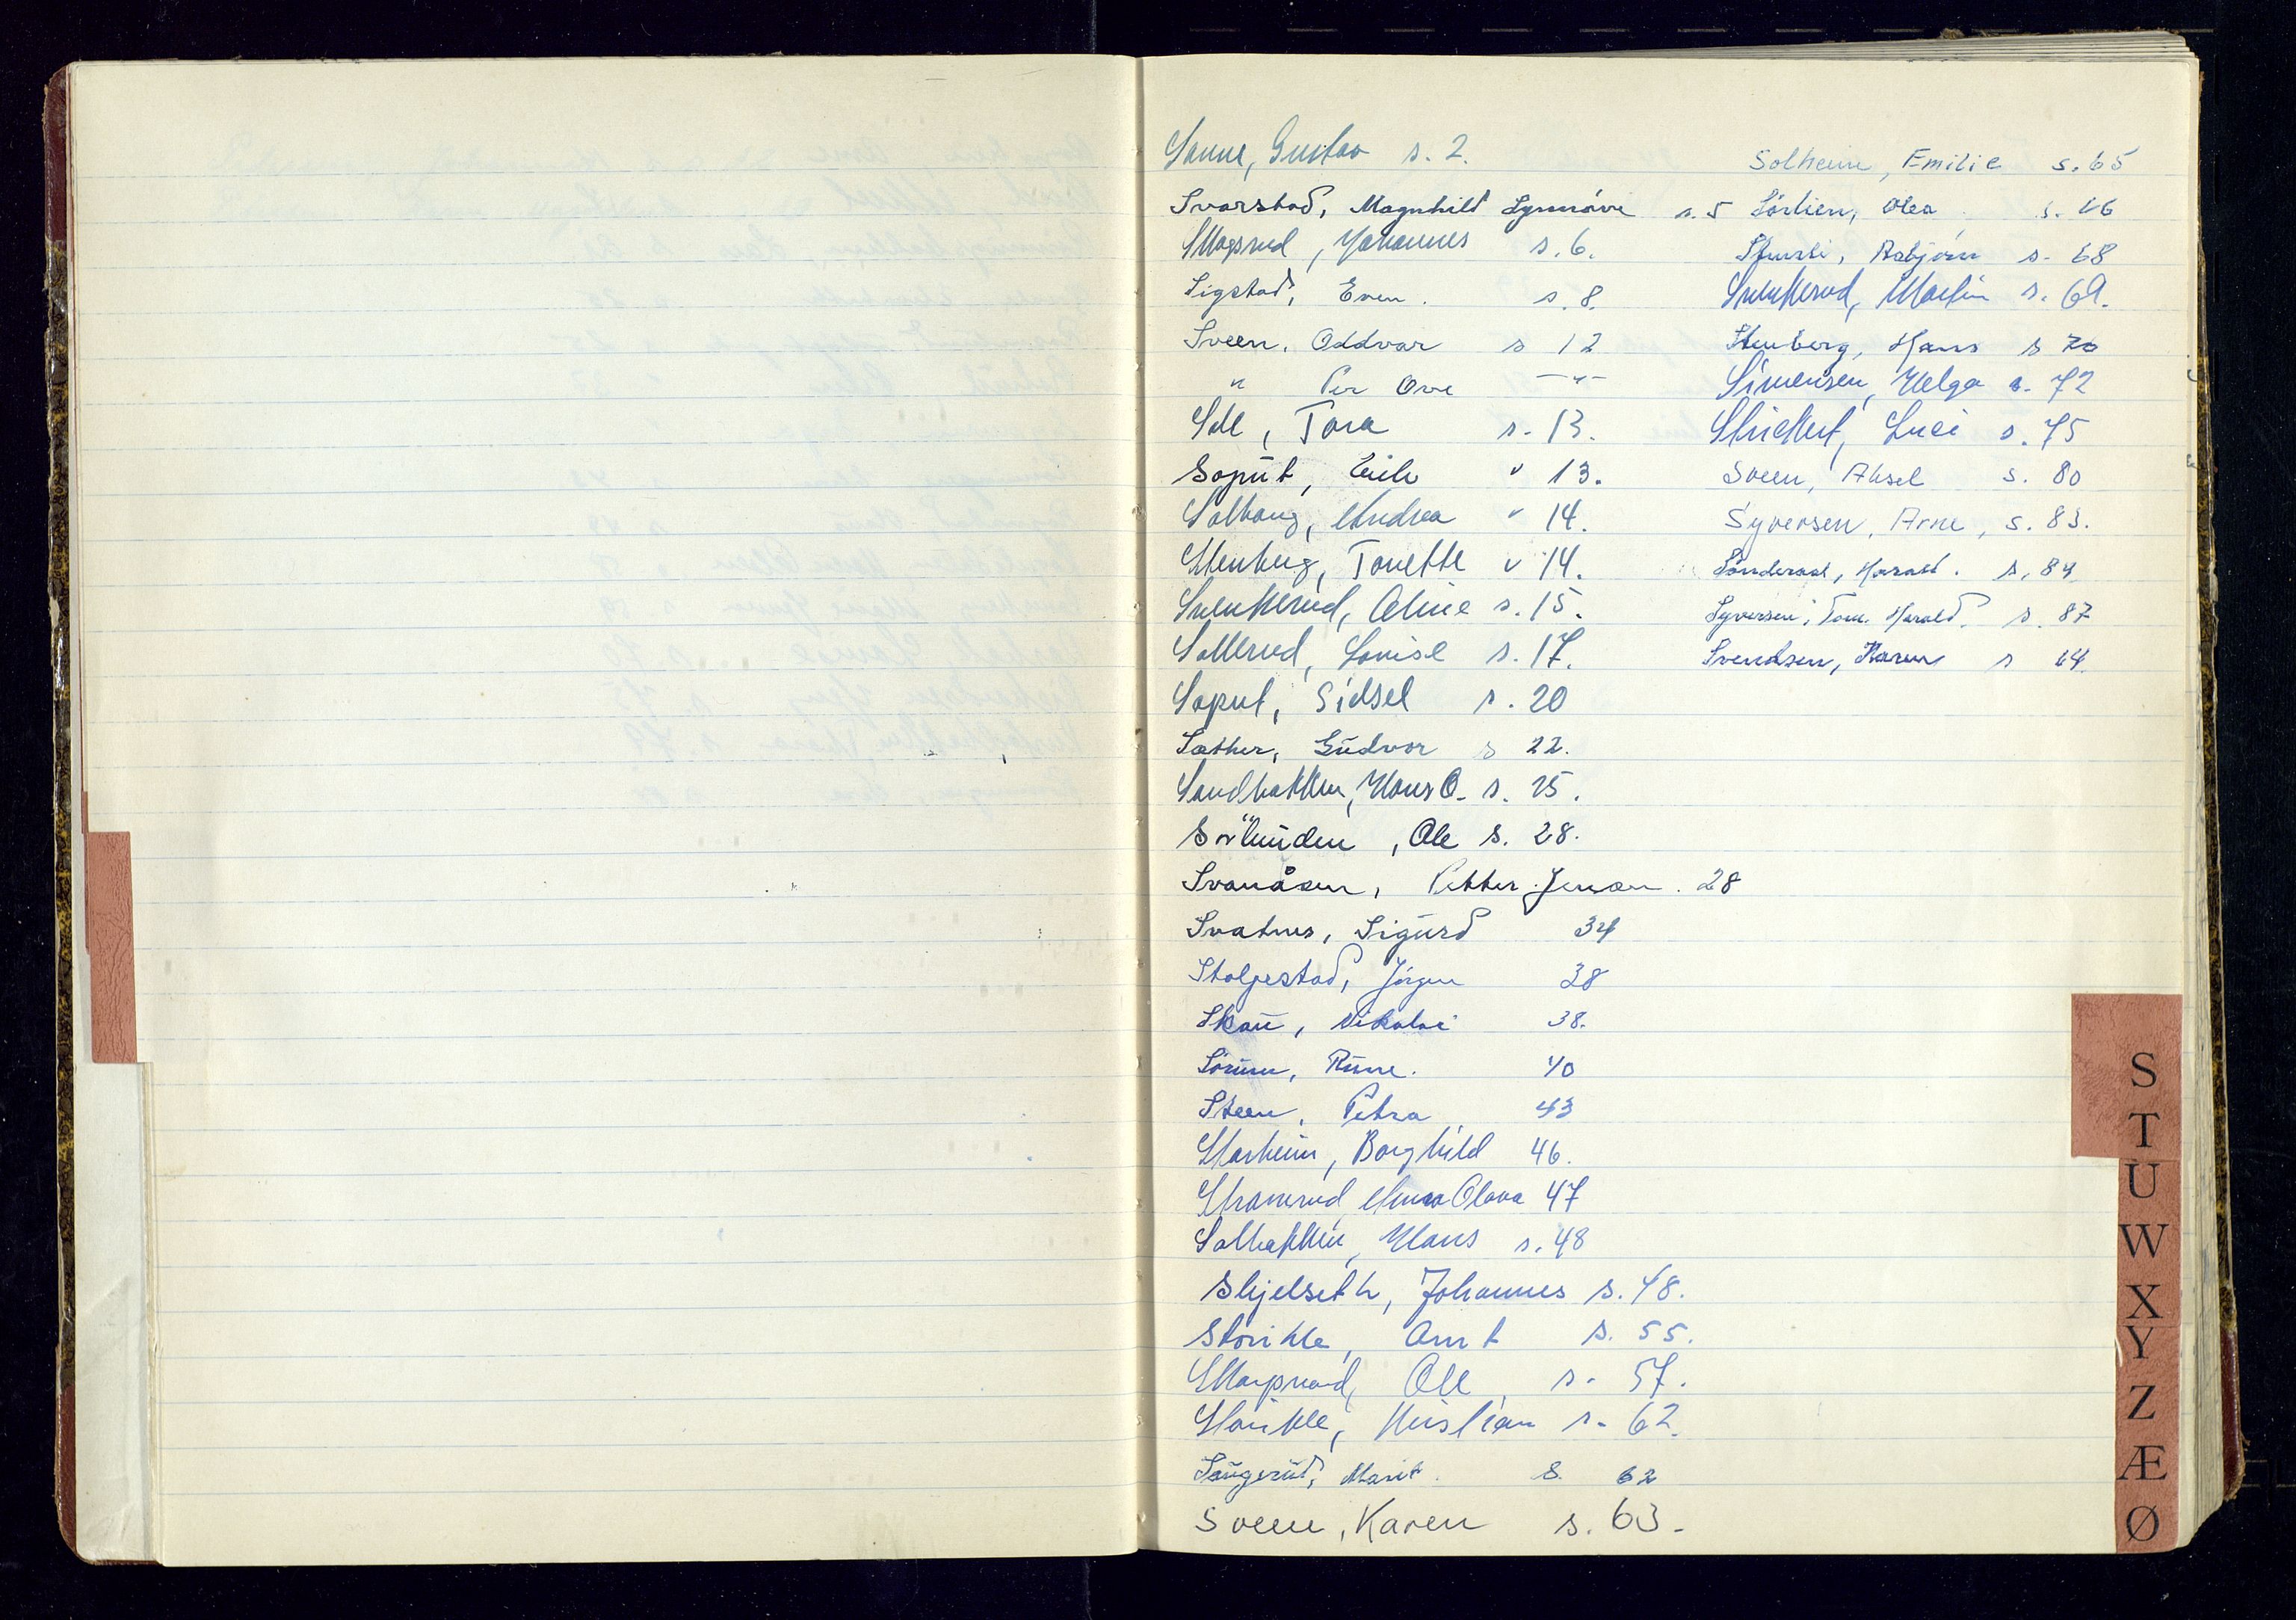 Sanne, Gustav s. 2.
Svarstad, Magnhild Synnöve s. 5
Skogsrud, Johannes s. 6.
Sigstad, Even. s. 8.
Sveen, Oddvar s 12
" Per Ove —"—
Soll, Tora s. 13.
Soput, Eirik v 13.
Solhaug, Andrea v 14.
Stenberg, Tonette v 14.
Svenkerud, Oline s. 15.
Sollerud, Louise s. 17.
Soput, Sidsel s. 20
Sæther, Gudvor s 22.
Sandbakken, Hans O. s. 25.
Sörlunden, Ole s. 28.
Svanåsen, Petter Jensen. 28
Svatnes, Sigurd 34
Stolpestad, Jörgen 38
Skau, Nikolai 38.
Sörum, Rune. 40
Steen, Petra 43
Starheim, Borghild 46.
Olava 47
Solbakken, Hans s. 48
Skjelseth, Johannes s. 48.
Storihle, Arnt s. 55.
Ole, s. 57.
Storihle, Kristian s. 62.
Saugerud, Marit. s. 62
Sveen, Karen s. 63.
Solheim, Emilie s. 65
Sörlien, Olea s. 66
Asbjörn s. 68
Svenkerud, Martin s. 69.
Stenberg, Hans s 70
Simensen, Helga s. 72
Luci s. 75
Sveen, Aksel s. 80
Syversen, Arne, s. 83.
Sönderaal, Harald. s. 84
Syversen, Tom Harald. s. 87
Svendsen, Karen s 64.
S
T
U
W
X
Y
Z
Æ
Ø